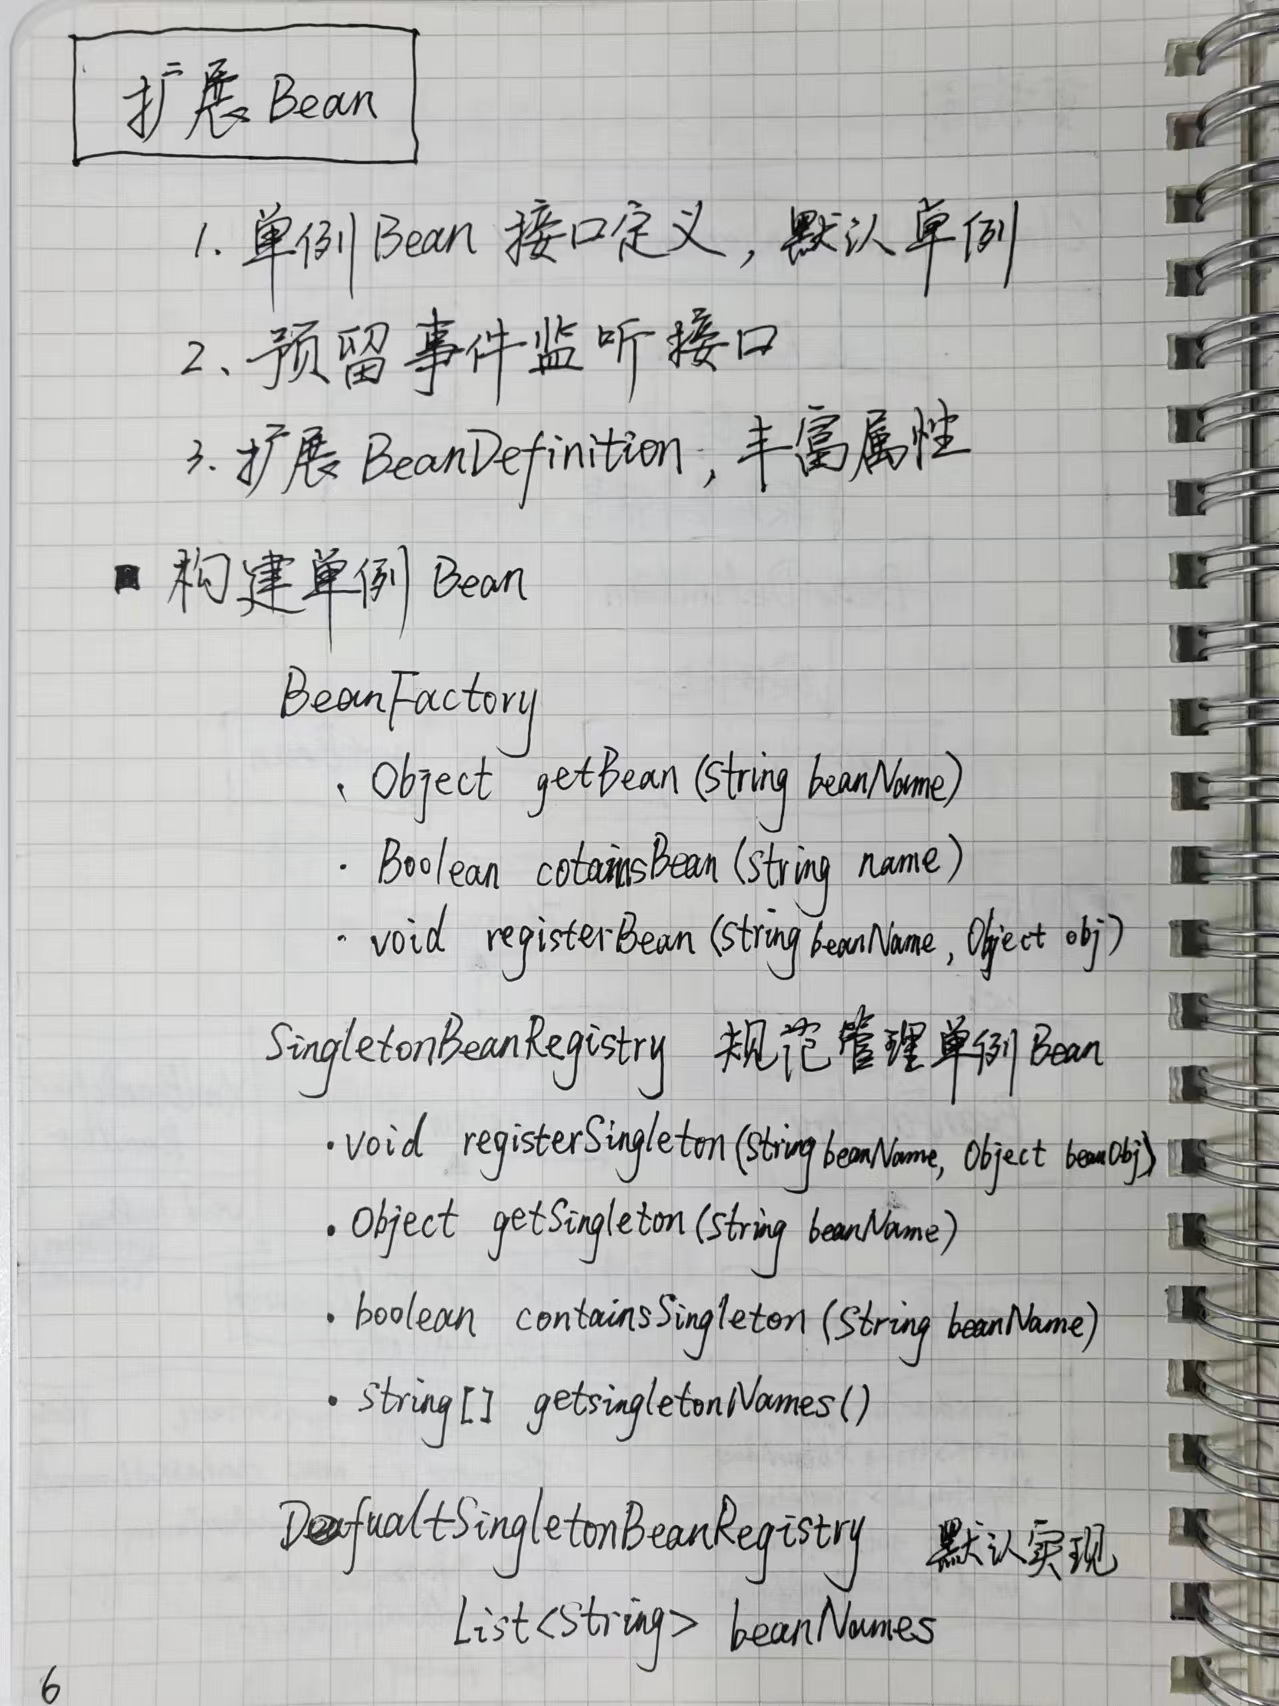 扩展 Bean
1. 单例 Bean 接口定义, 默认单例
2、预留事件监听接口
3. 扩展 BeanDefinition, 丰富属性
■ 构建单例 Bean
BeanFactory
· Object getBean (String beanName)
· Boolean cotainsBean (String name)
· void registerBean (String beanName, Object obj)
SingletonBeanRegistry 规范管理单例 Bean
· void registerSingleton (String beanName, Object beanObj)
· Object getSingleton (String beanName)
· boolean containsSingleton (String beanName)
· String[] getsingletonNames()
DefualtSingletonBeanRegistry 默认实现
List<String> beanNames
6